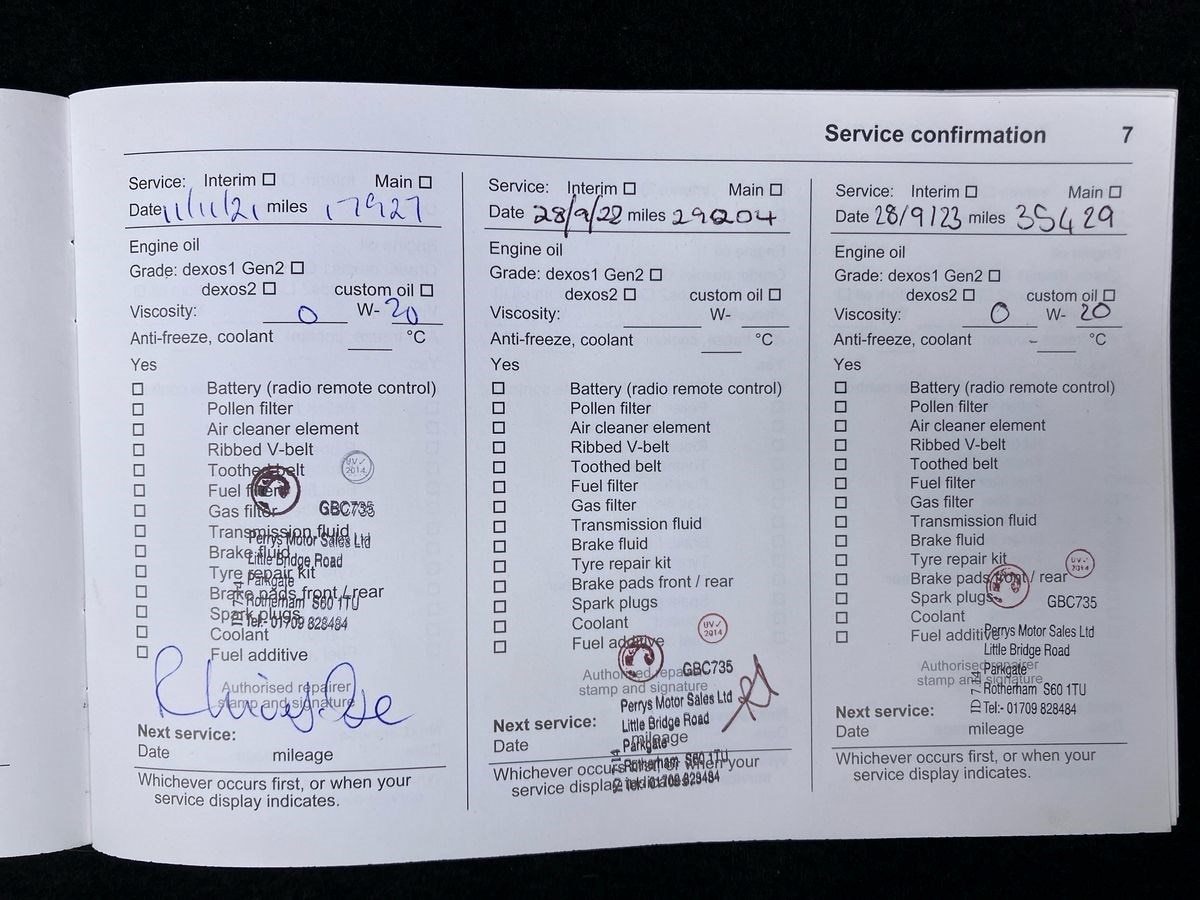 Service confirmation 7
Service: Interim ☐ Main ☐
Date 11/11/21 miles 17927
Engine oil
Grade: dexos1 Gen2 ☐
dexos2 ☐ custom oil ☐
Viscosity: 0 W- 20
Anti-freeze, coolant ___ °C
Yes
☐ Battery (radio remote control)
☐ Pollen filter
☐ Air cleaner element
☐ Ribbed V-belt
☐ Toothed belt
☐ Fuel filter
☐ Gas filter
☐ Transmission fluid
☐ Brake fluid
☐ Tyre repair kit
☐ Brake pads front / rear
☐ Spark plugs
☐ Coolant
☐ Fuel additive
UV✓
2014
GBC735
Perrys Motor Sales Ltd
Little Bridge Road
Parkgate
Rotherham S60 1TU
Tel:- 01709 828484
Authorised repairer
stamp and signature
Next service:
Date mileage
Whichever occurs first, or when your
service display indicates.
Service: Interim ☐ Main ☐
Date 28/9/22 miles 29204
Engine oil
Grade: dexos1 Gen2 ☐
dexos2 ☐ custom oil ☐
Viscosity: ___ W- ___
Anti-freeze, coolant ___ °C
Yes
☐ Battery (radio remote control)
☐ Pollen filter
☐ Air cleaner element
☐ Ribbed V-belt
☐ Toothed belt
☐ Fuel filter
☐ Gas filter
☐ Transmission fluid
☐ Brake fluid
☐ Tyre repair kit
☐ Brake pads front / rear
☐ Spark plugs
☐ Coolant
☐ Fuel additive
UV✓
2014
GBC735
Perrys Motor Sales Ltd
Little Bridge Road
Parkgate
Rotherham S60 1TU
Tel:- 01709 828484
Authorised repairer
stamp and signature
Next service:
Date mileage
Whichever occurs first, or when your
service display indicates.
Service: Interim ☐ Main ☐
Date 28/9/23 miles 35429
Engine oil
Grade: dexos1 Gen2 ☐
dexos2 ☐ custom oil ☐
Viscosity: 0 W- 20
Anti-freeze, coolant - ___ °C
Yes
☐ Battery (radio remote control)
☐ Pollen filter
☐ Air cleaner element
☐ Ribbed V-belt
☐ Toothed belt
☐ Fuel filter
☐ Gas filter
☐ Transmission fluid
☐ Brake fluid
☐ Tyre repair kit
☐ Brake pads front / rear
☐ Spark plugs
☐ Coolant
☐ Fuel additive
UV✓
2014
GBC735
Perrys Motor Sales Ltd
Little Bridge Road
Parkgate
Rotherham S60 1TU
Tel:- 01709 828484
ID 7714
Authorised repairer
stamp and signature
Next service:
Date mileage
Whichever occurs first, or when your
service display indicates.